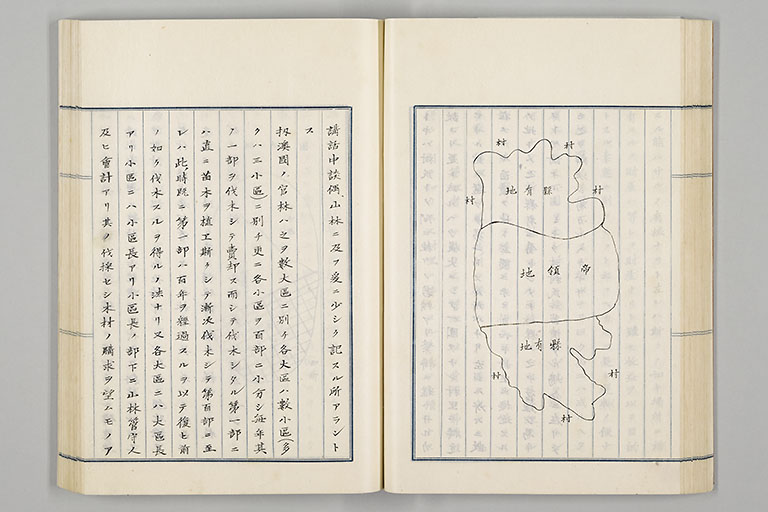 村
村
縣有地
村
村
帝領地
縣有地
村
村
講話中談偶〻山林ニ及フ爰ニ少シク記スル所アラント
ス
扨澳國ノ官林ハ之ヲ數大區ニ別チ各大區ハ數小區(多
クハ三小區)ニ別チ更ニ各小區ヲ百部ニ小分シ毎年其
ノ一部ヲ伐木シテ賣却ス而シテ伐木シタル第一部ニ
ハ直ニ苗木ヲ植ヱ斯クシテ漸次伐木シテ第百部ニ至
レハ此時既ニ第一部ハ百年ヲ經過スルヲ以テ復ヒ前
ノ如ク伐木スルヲ得ルノ法ナリ又各大區ニハ大區長
アリ小區ニハ小區長アリ小區長ノ部下ニ山林管守人
及ヒ會計アリ其ノ伐採セシ木材ノ購求ヲ望ムモノア